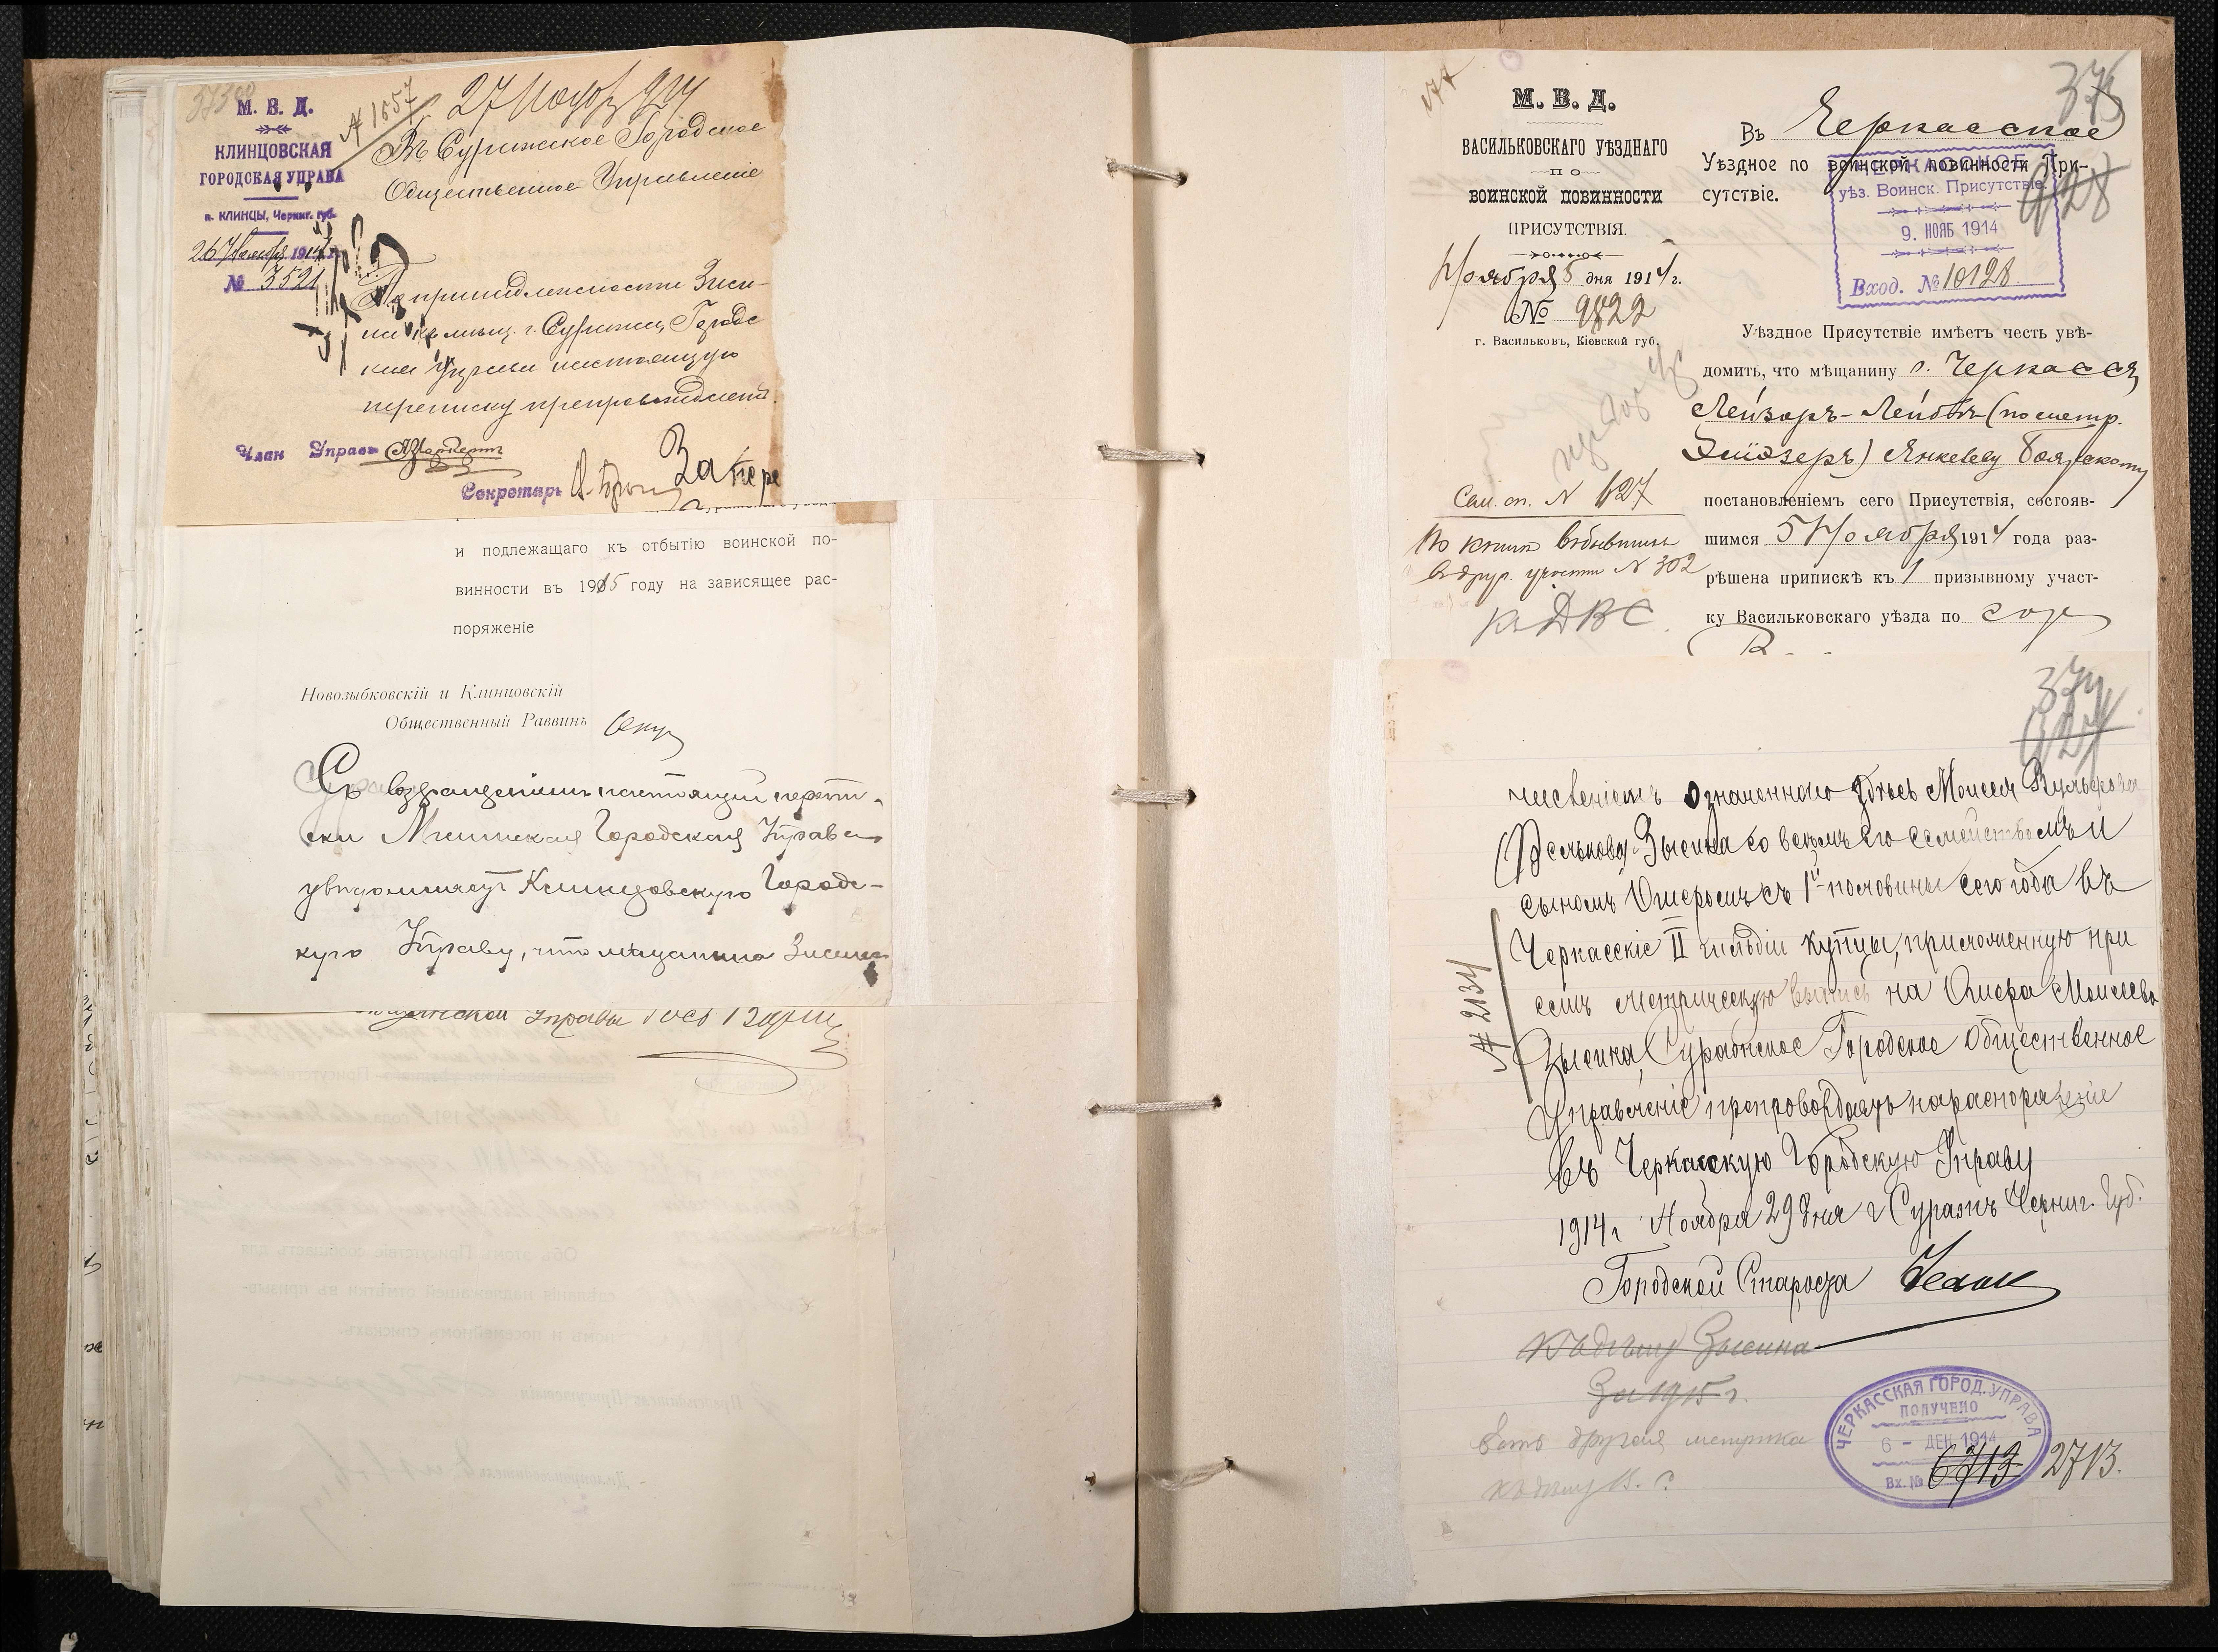 М. В. Д.
КЛИНЦОВСКАЯ
ГОРОДСКАЯ УПРАВА
п. КЛИНЦЫ, Черниг. губ.
26 Ноября 1914 г.
№ 3521
№ 1657
27 Нояб 914
Въ Суражское Городское
Общественное Управление
По принадлежности Зиси-
на къ мѣщ. г. Суража, Городс
кая Управа настоящую
переписку препровождаетъ.
Член Управы
Секретарь
За пере
и подлежащаго къ отбытію воинской по-
винности въ 1915 году на зависящее рас-
поряженіе
Новозыбковскій и Клинцовскій
Общественный Раввинъ
Съ возвращеніемъ настоящей переп-
ски Мглинская Городская Управа
увѣдомляетъ Клинцовскую Городс-
кую Управу, что мѣщанина Зисина
Управы
М. В. Д.
ВАСИЛЬКОВСКАГО УѢЗДНАГО
ПО
ВОИНСКОЙ ПОВИННОСТИ
ПРИСУТСТВІЯ.
Ноября 5 дня 1914 г.
№ 9822
г. Васильковъ, Кіевской губ.
Сем. сп. № 127
По книгѣ выбывшихъ
въ друг. участки № 302
Къ Д В С
375
928
Въ Черкасское
Уѣздное по воинской повинности При-
сутствіе.
ЧЕРКАССКОЕ
уѣз. Воинск. Присутствіе
9. НОЯБ 1914
Вход. № 10128
Уѣздное Присутствіе имѣетъ честь увѣ-
домить, что мѣщанину г. Черкассъ
Лейзоръ-Лейбѣ (по метр.
Элиэзеръ) Янкелеву Боярскому
постановленіемъ сего Присутствія, состояв-
шимся 5 Ноября 1914 года раз-
рѣшена припискѣ къ 1 призывному участ-
ку Васильковскаго уѣзда по
374
927
численіемъ означеннаго здѣсь Моисея Вульфова
Фелькова Зысина со всѣмъ его семействомъ и
сыномъ Ошеромъ съ 1й половины сего года въ
Черкасскіе II гильдіи купцы, приложенную при
семъ метрическую выпись на Ошера Моисеева
Зысина, Суражское Городское Общественное
Управленіе препровождаетъ на распоряженіе
въ Черкасскую Городскую Управу
1914 г. Ноября 29 дня г. Суражъ Черниг. Губ.
№ 2134
Городской Староста
Къ дѣлу Зысина
За 1915 г.
Есть другая метрика
къ дѣлу
ЧЕРКАССКАЯ ГОРОД. УПРАВА
ПОЛУЧЕНО
6 - ДЕК 1914
Вх. № 6713 2713.